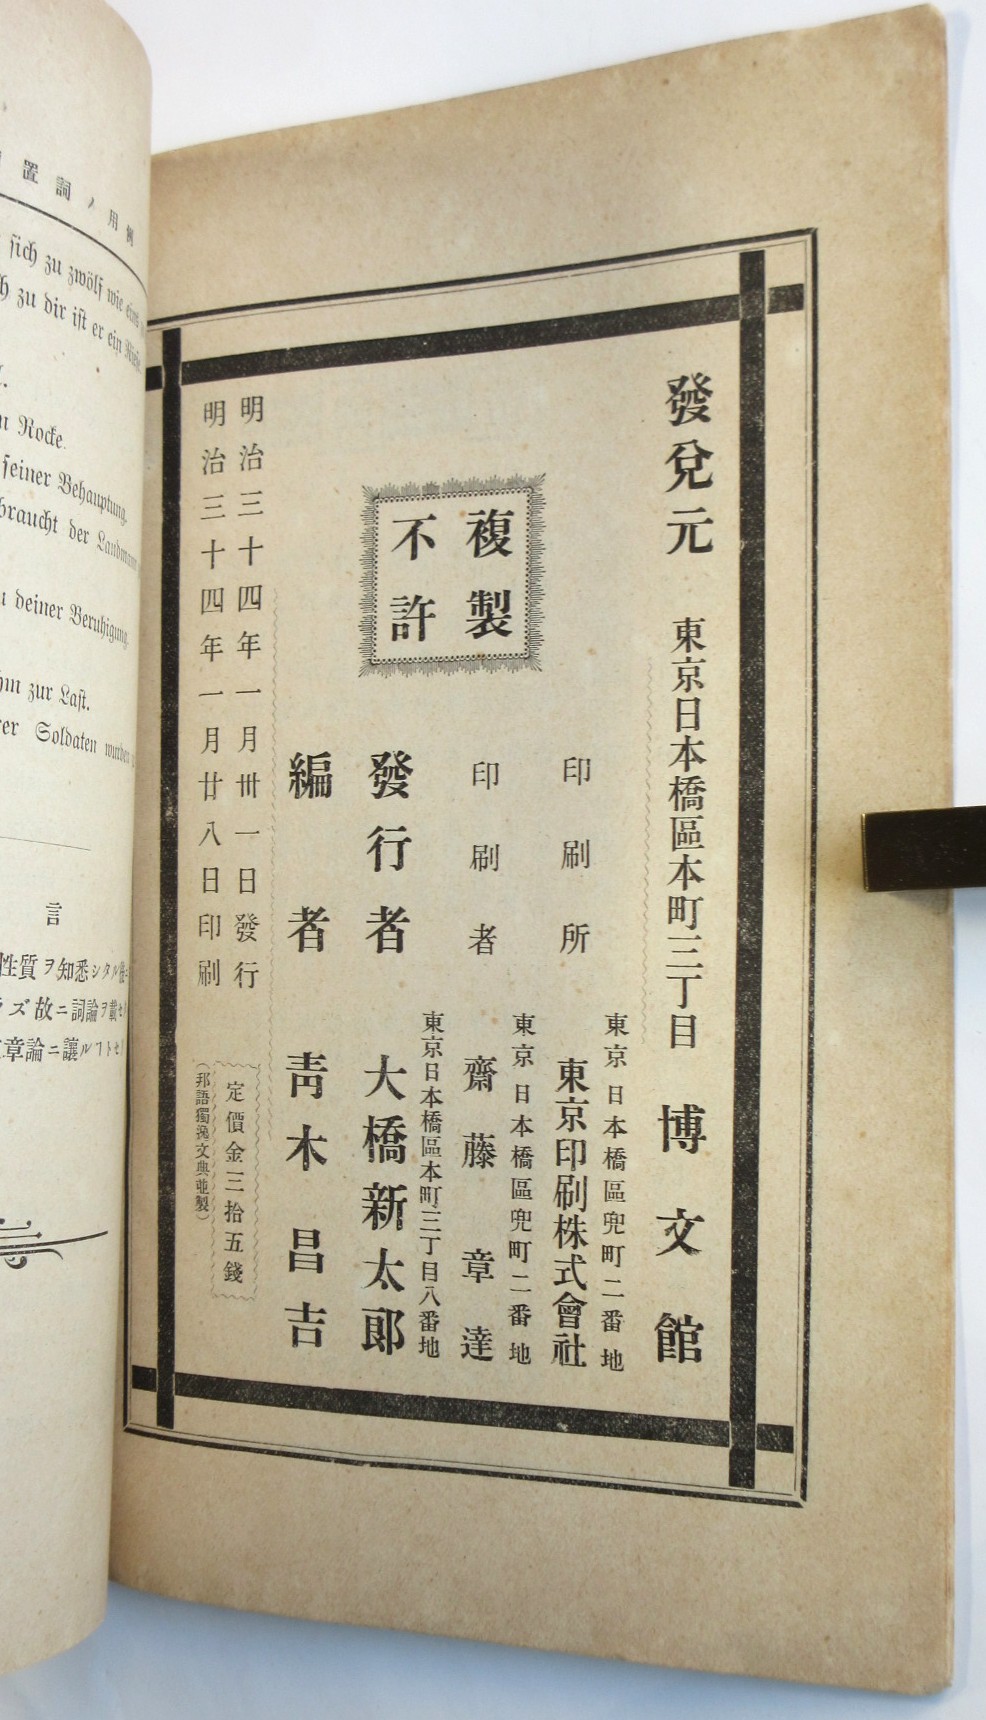 置詞ノ用例
sich zu zwölf wie eins
zu dir ist er ein Riese.
Rocke.
seiner Behauptung.
braucht der Landmann
deiner Beruhigung.
zur Last.
Soldaten wurden
言
性質ヲ知悉シタル後ニ
ズ故ニ詞論ヲ載セ
章論ニ讓ル
明治三十四年一月廿八日印刷
明治三十四年一月卅一日發行
定價金三拾五錢
(邦語獨逸文典並製)
複製
不許
編者 靑木昌吉
發行者 大橋新太郞
東京日本橋區本町三丁目八番地
印刷者 齋藤章達
東京日本橋區兜町二番地
印刷所 東京印刷株式會社
東京日本橋區兜町二番地
發兌元 東京日本橋區本町三丁目 博文館